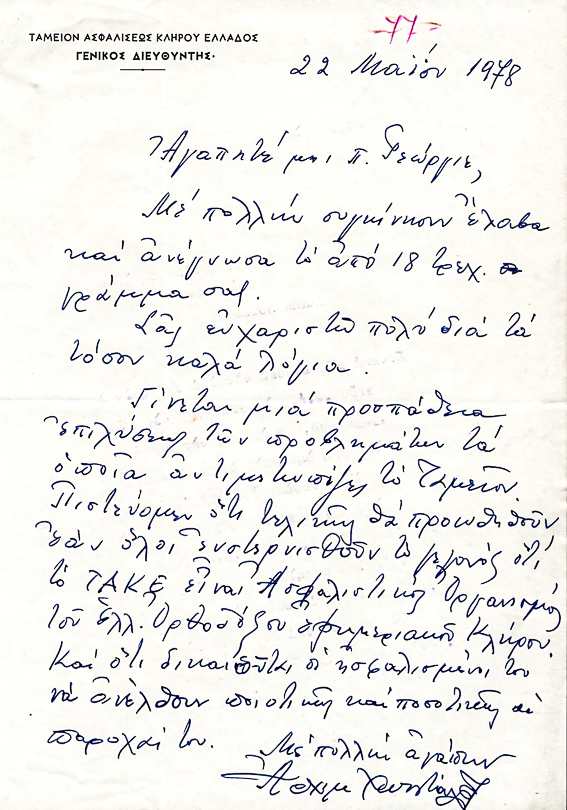 77
ΤΑΜΕΙΟΝ ΑΣΦΑΛΙΣΕΩΣ ΚΛΗΡΟΥ ΕΛΛΑΔΟΣ
ΓΕΝΙΚΟΣ ΔΙΕΥΘΥΝΤΗΣ
22 Μαΐου 1978
Ἀγαπητέ μοι π. Γεώργιε,
Μέ πολλήν συγκίνησιν ἔλαβα
καί ἀνέγνωσα τό ἀπό 18 τρεχ.
γράμμα σας.
Σᾶς εὐχαριστῶ πολύ διά τά
τόσον καλά λόγια.
Γίνεται μιά προσπάθεια
ἐπιλύσεως τῶν προβλημάτων τά
ὁποῖα ἀντιμετωπίζει τό Ταμεῖον.
Πιστεύομεν ὅτι τελικῶς θά προωθηθοῦν
ἐάν ὅλοι ἐνστερνισθοῦν τό γεγονός ὅτι
τό ΤΑΚΕ εἶναι Ἀσφαλιστικός Ὀργανισμός
τοῦ Ἑλλ. Ὀρθοδόξου ἐφημεριακοῦ Κλήρου.
Καί ὅτι δικαιοῦται οἱ ἠσφαλισμένοι του
νά ἀνέλθουν ποιοτικῶς καί ποσοτικῶς αἱ
παροχαί του.
Μέ πολλήν ἀγάπην